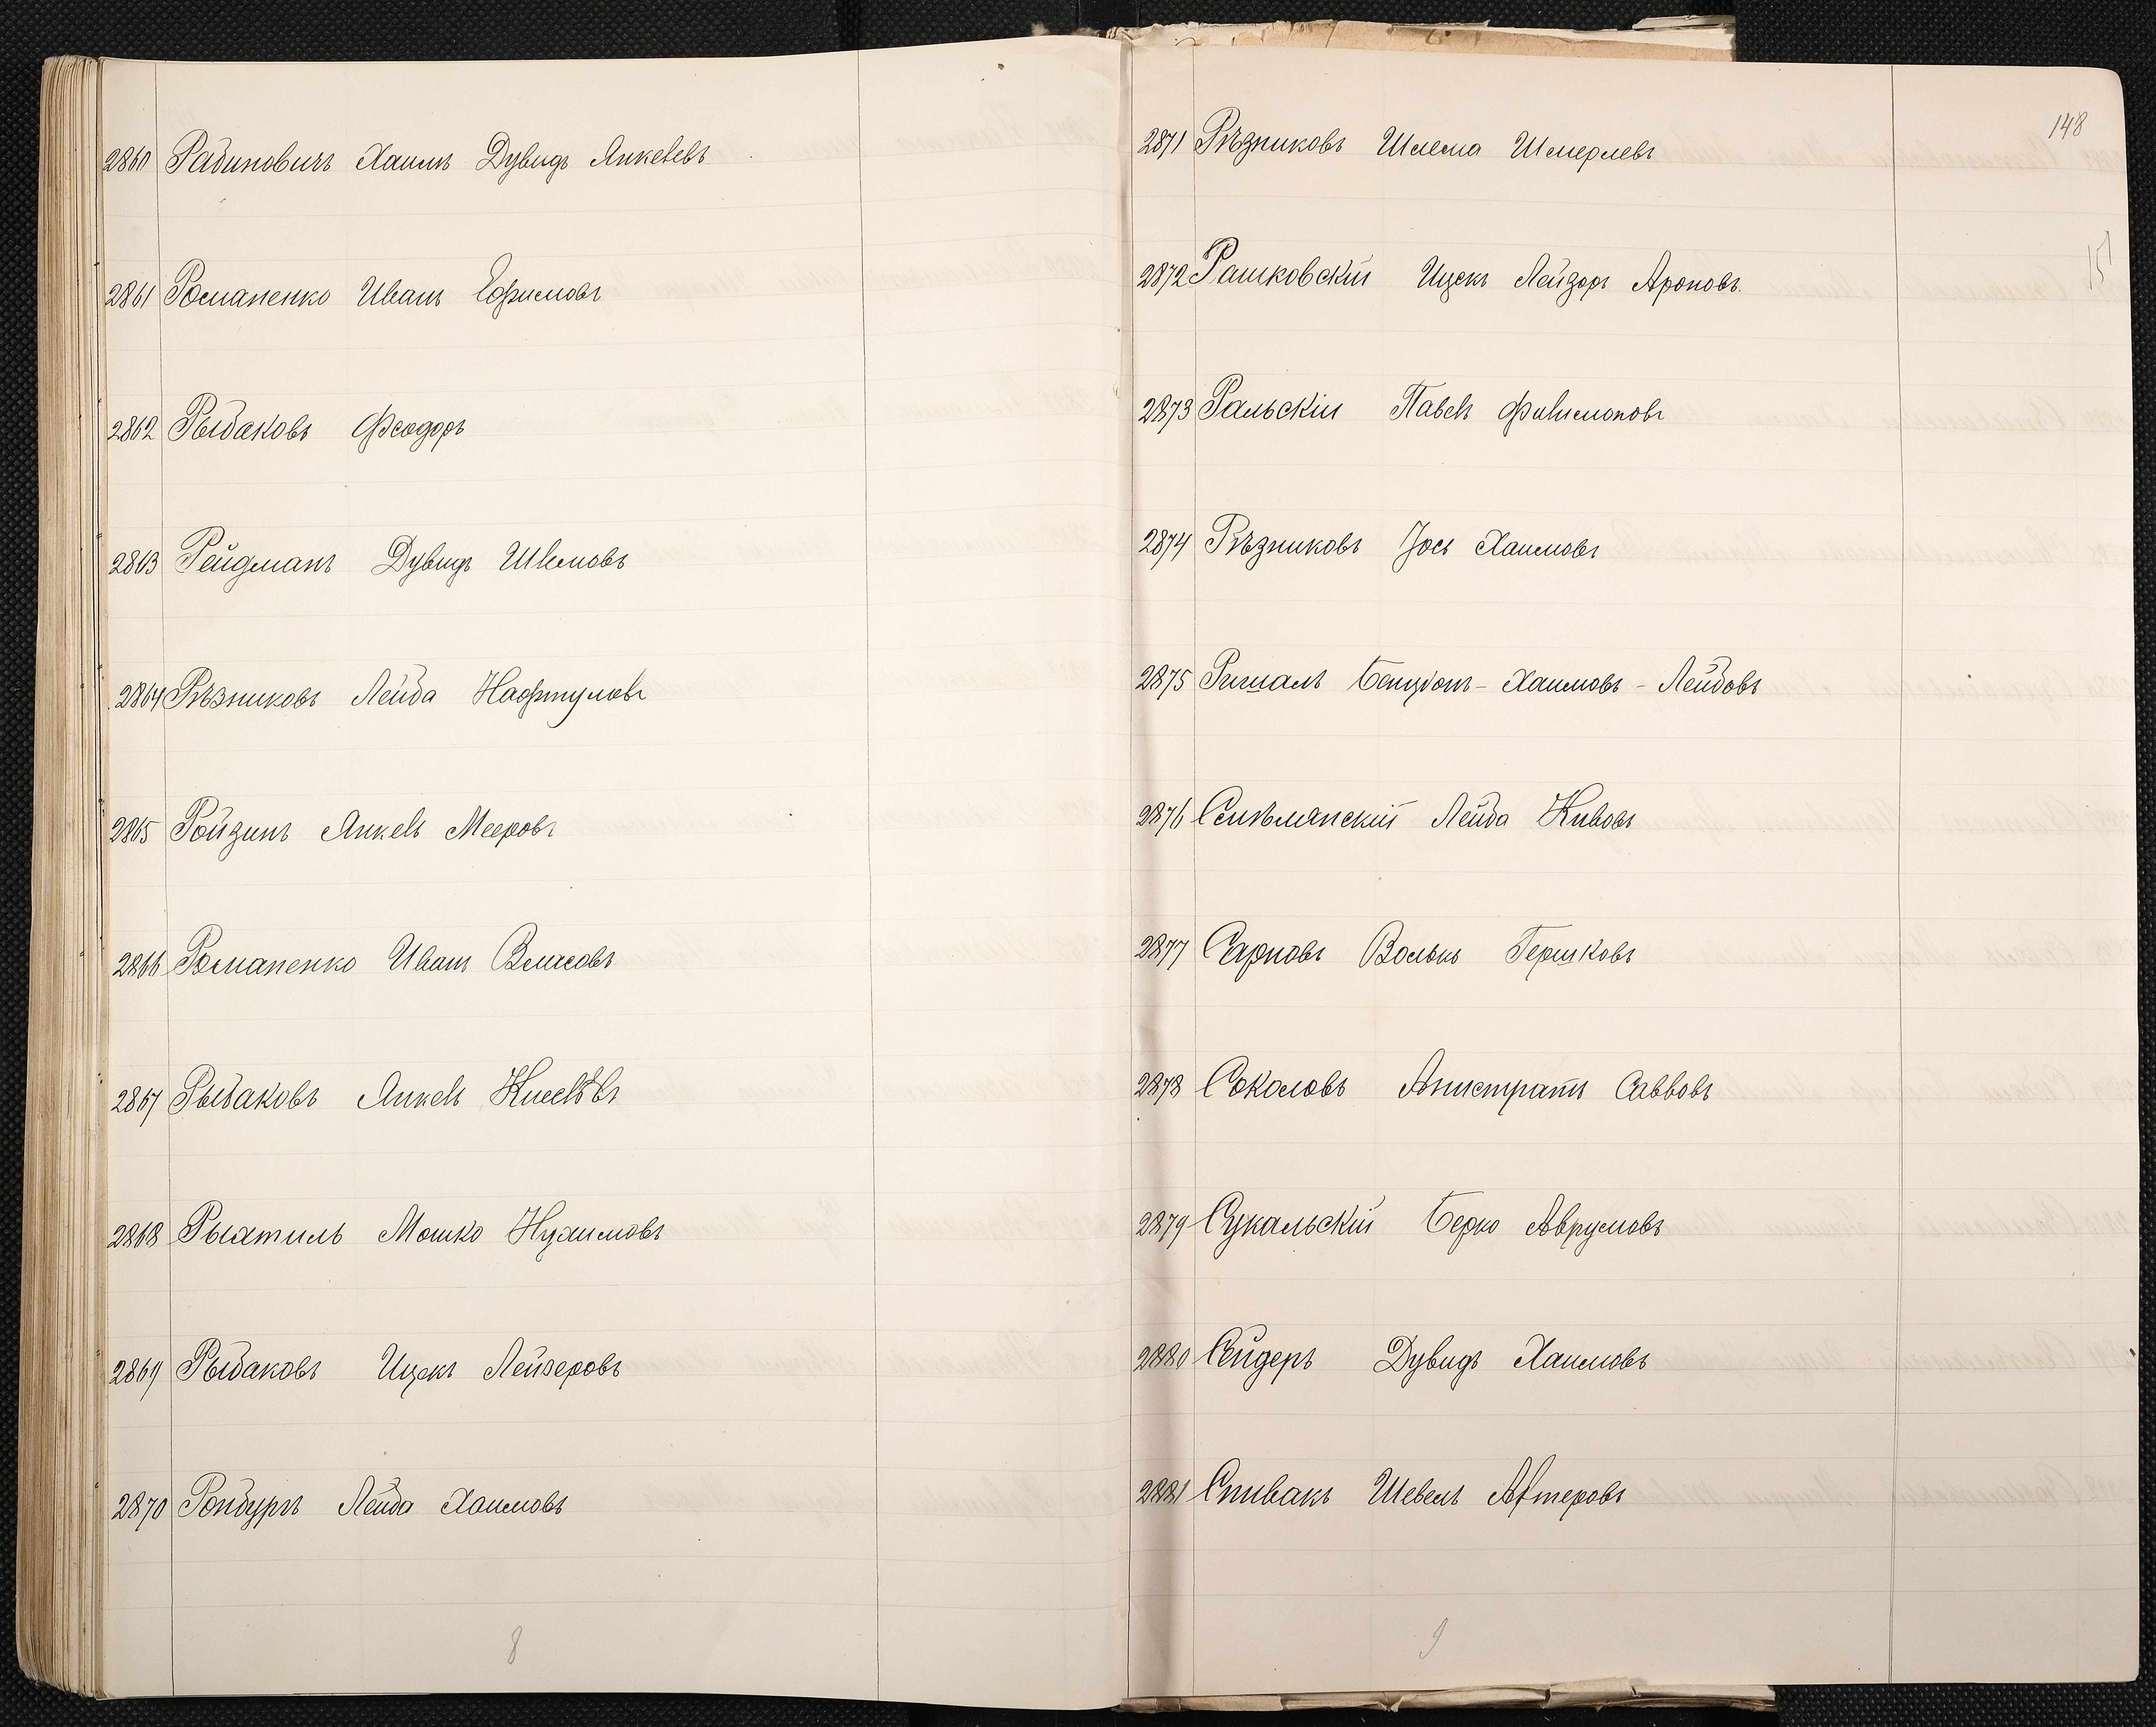 2860 Рабиновичъ Хаимъ Дувидъ Янкелевъ
2861 Романенко Иванъ Ефимовъ
2862 Рыбаковъ Феодоръ
2863 Рейдманъ Дувидъ Шлемовъ
2864 Рѣзниковъ Лейба Нафтуловъ
2865 Ройзинъ Янкель Мееровъ
2866 Романенко Иванъ Власовъ
2867 Рыбаковъ Янкель Киселѣвъ
2868 Рыхтиль Мошко Нухимовъ
2869 Рыбаковъ Ицекъ Лейзеровъ
2870 Ройбургъ Лейба Хаимовъ
8
148
151
2871 Рѣзниковъ Шлема Шмерлевъ
2872 Рашковскій Ицекъ Лейзоръ Ароновъ.
2873 Ральскій Павелъ Филимоновъ
2874 Рѣзниковъ Іось Хаимовъ
2875 Ригалъ Бенціонъ - Хаимовъ - Лейбовъ
2876 Смѣлянскій Лейба Кивовъ
2877 Сарновъ Волько Гершковъ
2878 Соколовъ Анистратъ Саввовъ
2879 Сукальскій Берко Аврумовъ
2880 Сейдеръ Дувидъ Хаимовъ
2881 Спивакъ Шевелъ
9